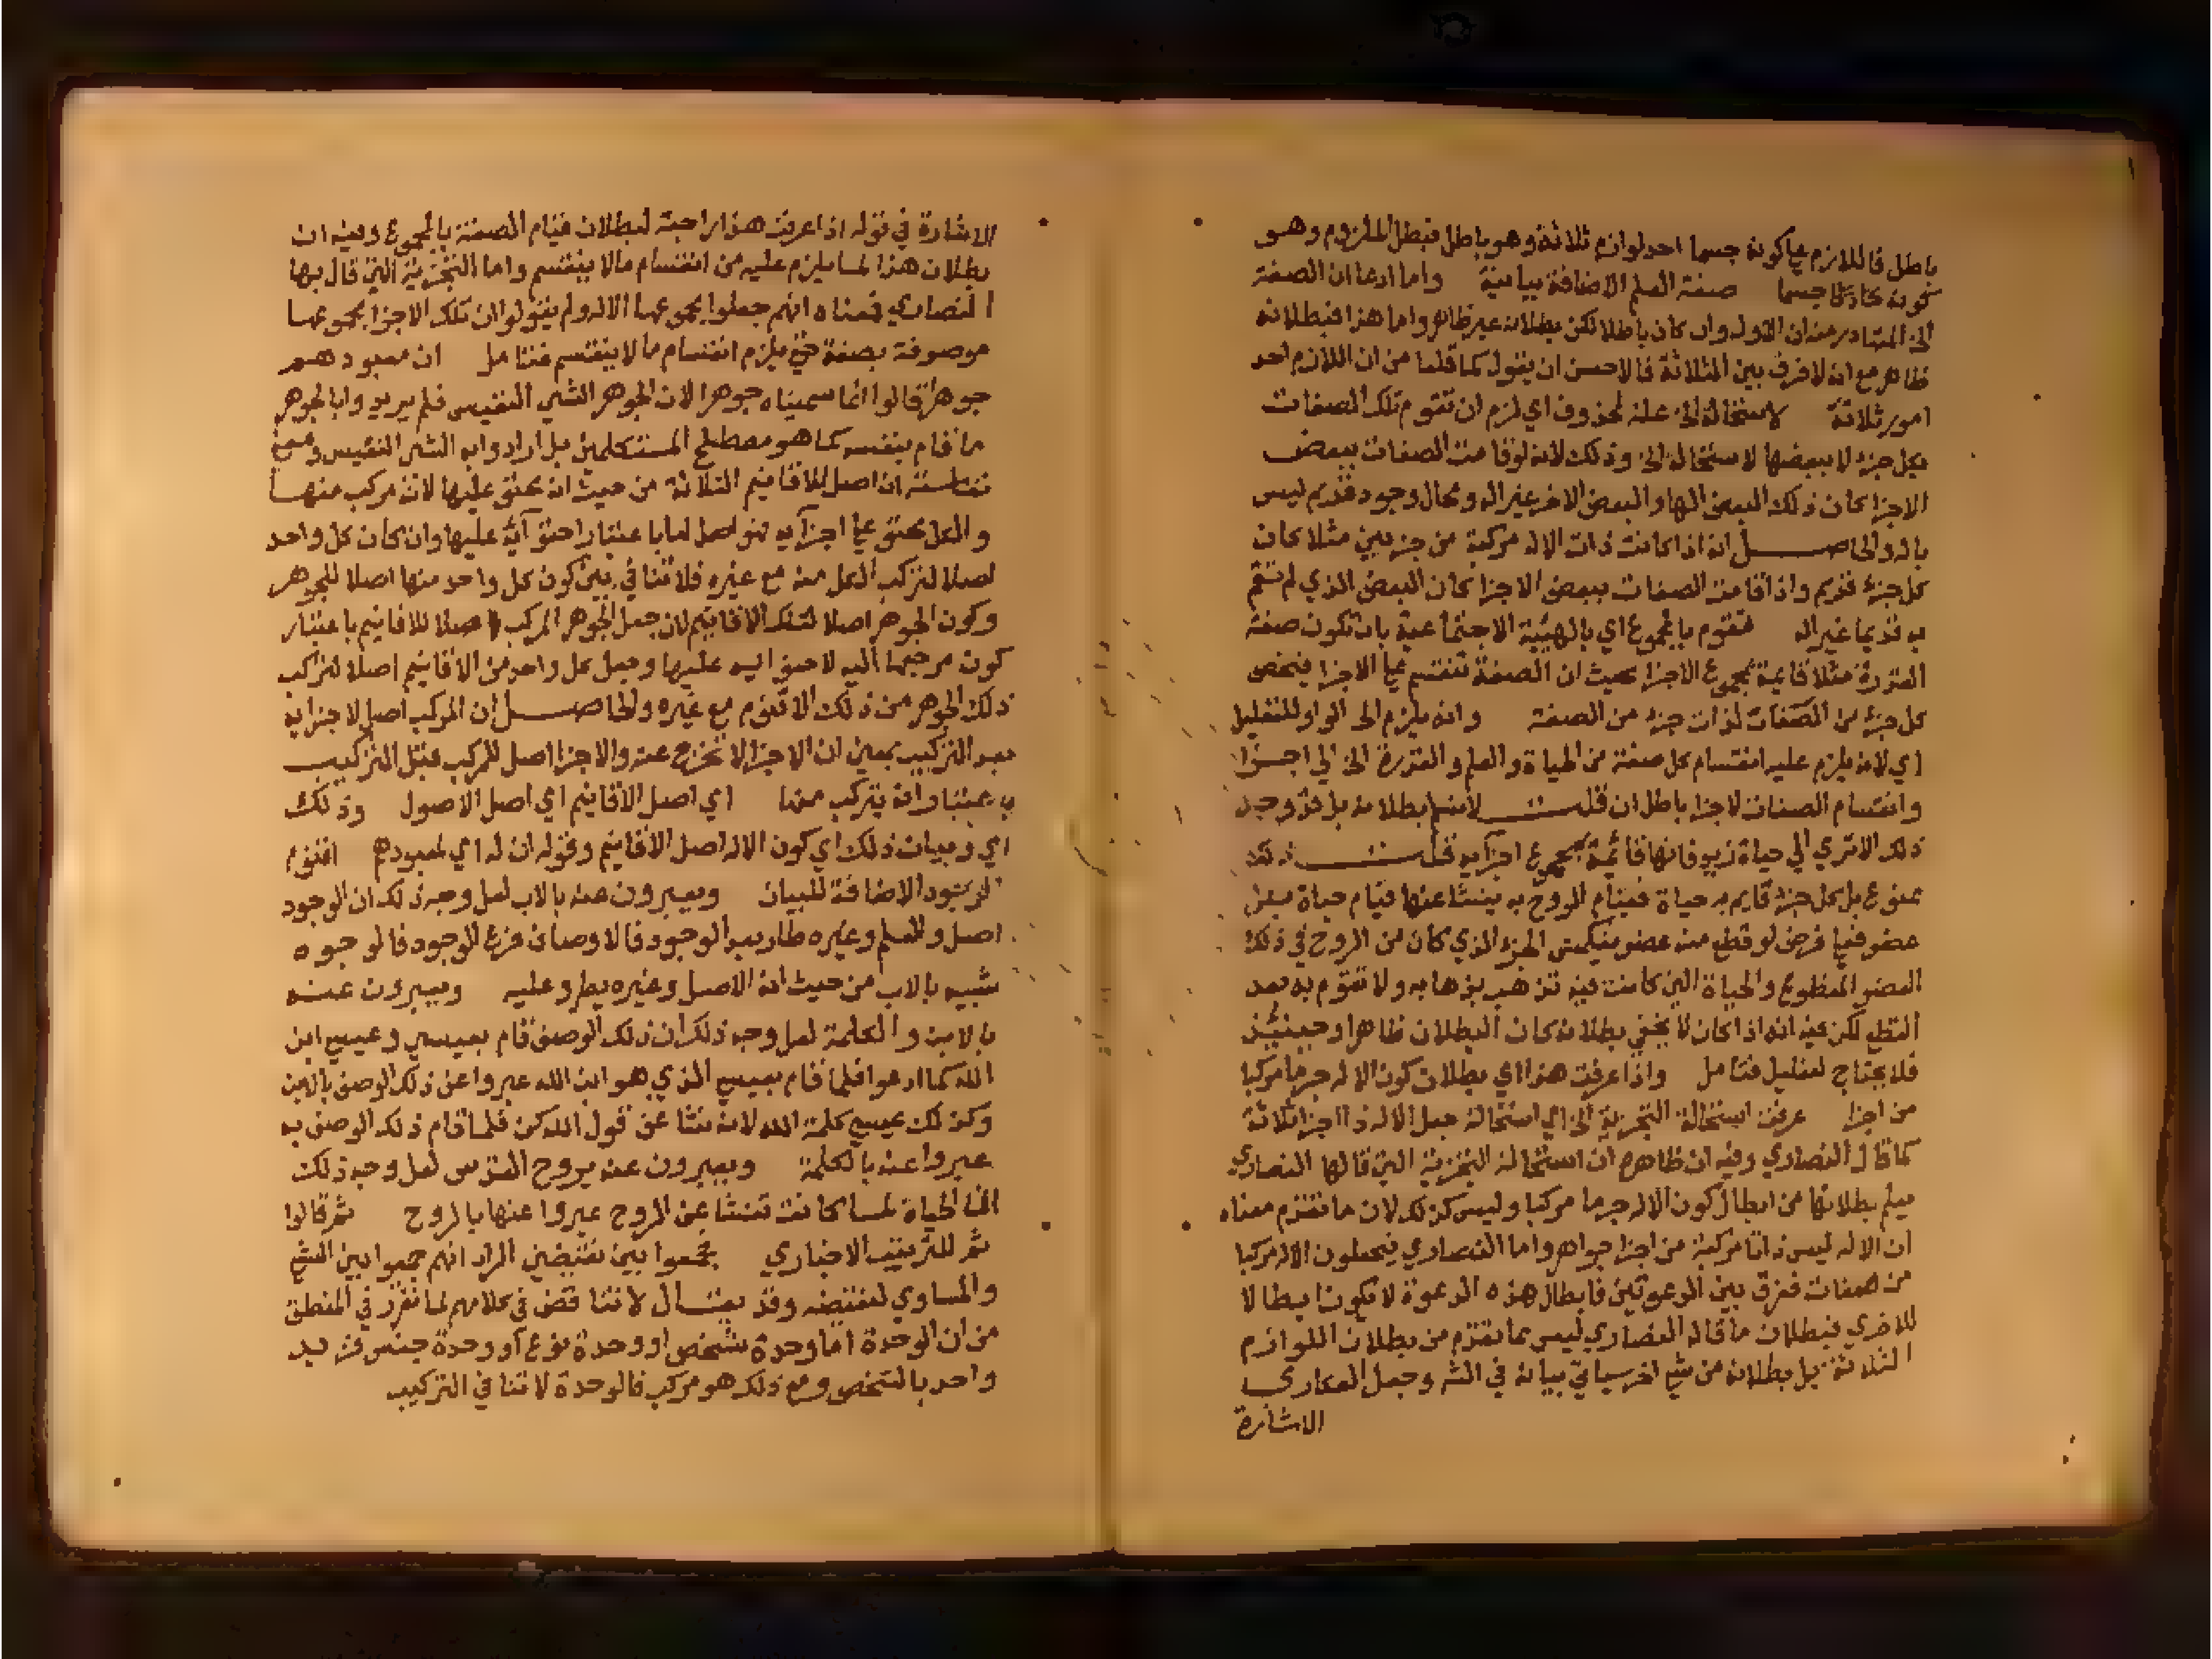 باطل فاللازم على كونه جسما احد لوازم ثلاثة وهو باطل فبطل الملزوم وهو
كونه جسما صفة العلم الاضافة بيانية واما ادعا ان الصفة
الخ المتبادر منه ان الاول وان كان باطلا لكن بطلانه غير ظاهر واما هذا فبطلانه
ظاهر مع انه لا فرق بين الثلاثة فالاحسن ان يقول كما قلنا من ان اللازم احد
امور ثلاثة لاستحالة الخ علة لمحذوف اي لزم ان تقوم تلك الصفات
بكل جزء لا ببعضها لاستحالة الخ وذلك لانه لو قامت الصفات ببعض
الاجزا كان ذلك البعض الها والبعض الاخر غير اله ومحال وجود قديم ليس
باله والحاصل انه اذا كانت ذات الاله مركبة من جزءين مثلا كان
كل جزء قديم واذا قامت الصفات ببعض الاجزا كان البعض الذي لم تقم
به قديما غير اله فتقوم بالمجموع اي بالهيئة الاجتماعية بان تكون صفة
القدرة مثلا قايمة بمجموع الاجزا بحيث ان الصفة تنقسم على الاجزا فيخص
كل جزء من الصفات لذات جزء من الصفة وانه يلزم الخ الواو للتعليل
اي لانه يلزم عليه انقسام كل صفة من الحياة والعلم والقدرة الخ الي اجزا
وانقسام الصفات لاجزا باطل ان قلت لانسلم بطلانه بل قد وجد
ذلك الا تري الي حياة زيد فانها قائمة بمجموع اجزايه قلت ذلك
ممنوع بل كل جزء قايم به حياة فقيام الروح به ينشا عنها قيام حياة بكل
عضو فيما فرض لو قطع منه عضو ينكمش الجزء الذي كان من الروح في ذلك
العضو المقطوع والحياة التي كانت فيه تذهب بذهابه ولا تقوم به بعد
القطع لكن فيه انه اذا كان لا يخفي بطلانه كان البطلان ظاهرا وحينئذ
فلا يحتاج لتعليل فتامل واذا عرفت هذا اي بطلان كون الاله جرما مركبا
من اجزا عرفت استحالة التجزية الخ اي استحالة جعل الاله ذا اجزا ثلاثة
كما قال النصاري وفيه ان ظاهره ان استحالة التجزية التي قالها النصاري
يعلم بطلانها من ابطال كون الاله جرما مركبا وليس كذلك لان ما تقدم معناه
ان الاله ليس ذاتا مركبة من اجزا جواهر واما النصاري فيجعلون الاله مركبا
من صفات ففرق بين الدعوتين فابطال هذه الدعوة لا يكون ابطالا
للاخري فبطلان ما قاله النصاري ليس مما تقدم من بطلان اللوازم
الثلاثة بل بطلانه من شي اخر سياتي بيانه في الشر وجعل العكاري
الاشارة
الاشارة في قوله اذا عرفت هذا راجعة لبطلان قيام الصفة بالمجموع وفيه ان
بطلان هذا لما يلزم عليه من انقسام مالا ينقسم واما التجزية التي قال بها
النصاري فمعناه انهم جعلوا مجموعها الاله ولم يقولوا ان تلك الاجزا مجموعها
موصوفة بصفة حتى يلزم انقسام ما لا ينقسم فتامل ان معبودهم
جوهر قالوا انما سميناه جوهرا لان الجوهر الشي النفيس فلم يريدوا بالجوهر
ما قام بنفسه كما هو مصطلح المتكلمين بل ارادوا به الشي النفيس ومن
نفاسته انه اصل للاقانيم الثلاثة من حيث انه يحتوي عليها لانه مركب منها
والكل يحتوي على اجزايه فهو اصل لها باعتبار احتوآيه عليها وان كان كل واحد
اصلا لتركب الكل منه مع غيره فلا تنافي بين كون كل واحد منها اصلا للجوهر
وكون الجوهر اصلا لتلك الاقانيم لان جعل الجوهر المركب اصلا للاقانيم باعتبار
كون مرجعها اليه لاحتوايه عليها وجعل كل واحد من الاقانيم اصلا لتركب
ذلك الجوهر من ذلك الاقنوم مع غيره والحاصل ان المركب اصل لاجزايه
بعد التركيب بمعني ان الاجزا لا تخرج عنه والاجزا اصل للمركب قبل التركيب
باعتبار انه يتركب منها اي اصل الاقانيم اي اصل الاصول وذلك
اي وبيان ذلك اي كون الاله اصل الاقانيم وقوله ان له اي لمعبودهم اقنوم
الوجود الاضافة للبيان ويعبرون عنه بالاب لعل وجه ذلك ان الوجود
اصل والعلم وغيره طار بعد الوجود فالاوصاف فرع للوجود فالوجود
شبيه بالاب من حيث انه الاصل وغيره يطرو عليه ويعبرون عنه
بالابن والكلمة لعل وجه ذلك ان ذلك الوصف قام بعيسي وعيسي ابن
الله كما ادعوا فلما قام بعيسي الذي هو ابن الله عبروا عن ذلك الوصف بالابن
وكذلك عيسي كلمة الله لانه نشا عن قول الله كن فلما قام ذلك الوصف به
عبروا عنه بالكلمة ويعبرون عنه بروح القدس لعل وجه ذلك
ان الحياة لما كانت تنشا عن الروح عبروا عنها بالروح ثم قالوا
ثم للترتيب الاخباري فجمعوا بين نقيضين المراد انهم جمعوا بين الشي
والمساوي لنقيضه وقد يقال لا تناقض في كلامهم لما تقرر في المنطق
من ان الوحدة اما وحدة شخص او وحدة نوع او وحدة جنس فزيد
واحد بالشخص ومع ذلك هو مركب فالوحدة لا تنافي التركيب